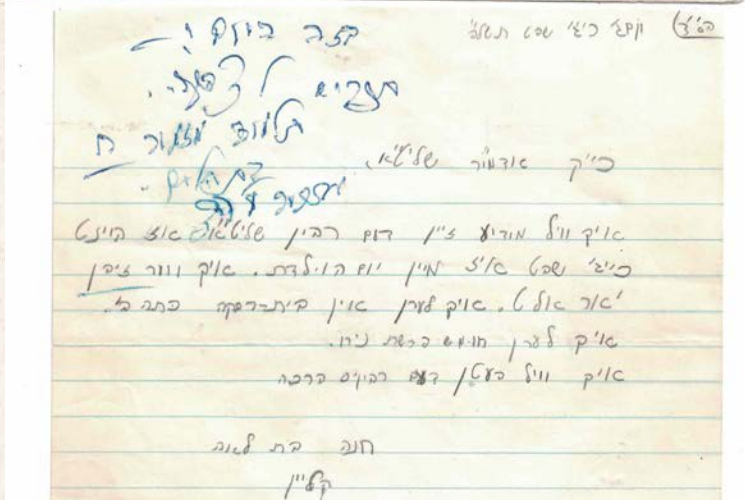 בס"ד יום ג' כ"ג שבט
בזה היום
תפריש לצדקה.
מזמור ח
כ"ק אדמו"ר שליט"א,
איך וויל מודיע זיין דעם רבין שליט"א אז היינט
כ"ג שבט איז מיין יום הולדת. איך ווער זיבן
יאר אלט. איך לערן אין בית-רבקה כתה ב'.
איך לערן חומש פרשת
איך וויל בעטן דעם רבינ'ס ברכה
חנה בת לאה
קליין